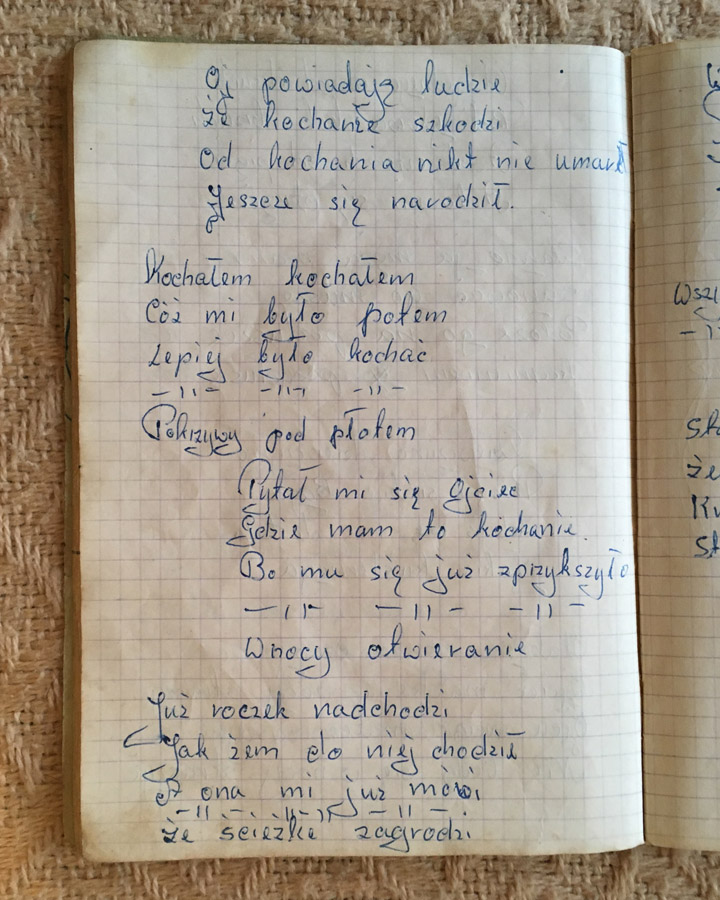 Oj powiadają ludzie
że kochanie szkodzi
Od kochania nikt nie umarł
Jeszcze się narodził.
Kochałem kochałem
Cóż mi było potem
Lepiej było kochać
-11- -11- -11-
Pokrzywy pod płotem
Pytał mi się Ojciec
Gdzie mam to kochanie.
Bo mu się już zprzykszyło
-11- -11- -11-
Wnocy otwieranie
Już roczek nadchodzi
Jak żem do niej chodził
A ona mi już mówi
-11- -11- -11-
że ścieżkę zagrodzi